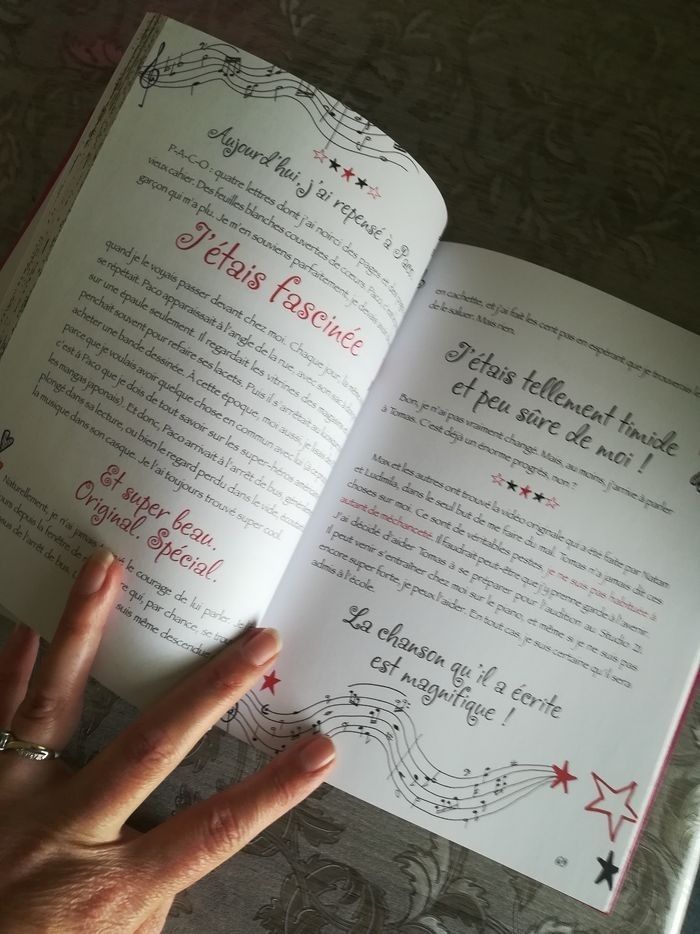 Aujourd'hui, j'ai repensé à
P-A-C-O : quatre lettres dont j'ai noirci des pages et des pages
vieux cahier. Des feuilles blanches couvertes de cœurs. Paco, c'est
garçon qui m'a plu. Je m'en souviens parfaitement, je devais avoir
J'étais fascinée
quand je le voyais passer devant chez moi. Chaque jour, la même
se répétait. Paco apparaissait à l'angle de la rue, avec son sac à dos
sur une épaule seulement. Il regardait les vitrines des magasins
penchait souvent pour refaire ses lacets. Puis il s'arrêtait au kiosque
acheter une bande dessinée. À cette époque, moi aussi, je lisais
parce que je voulais avoir quelque chose en commun avec lui
c'est à Paco que je dois de tout savoir sur les super-héros
les mangas japonais). Et donc, Paco arrivait à l'arrêt de bus,
plongé dans sa lecture, ou bien le regard perdu dans le vide,
la musique dans son casque. Je l'ai toujours trouvé super cool.
Et super beau.
Original. Spécial.
Naturellement, je n'ai jamais le courage de lui parler. Je
depuis la fenêtre de qui, par chance, se
de l'arrêt de bus. suis même
en cachette, et j'ai fait les cent pas en espérant que je trouverais le
de le saluer. Mais rien.
J'étais tellement timide
et peu sûre de moi !
Bon, je n'ai pas vraiment changé. Mais, au moins, j'arrive à parler
à Tomas. C'est déjà un énorme progrès, non ?
Max et les autres ont trouvé la vidéo originale qui a été faite par Natan
et Ludmila, dans le seul but de me faire du mal. Tomas n'a jamais dit ces
choses sur moi. Ce sont de véritables pestes, je ne suis pas habituée à
autant de méchanceté. Il faudrait peut-être que j'y prenne garde à l'avenir.
J'ai décidé d'aider Tomas à se préparer pour l'audition au Studio 21.
Il peut venir s'entraîner chez moi sur le piano, et même si je ne suis pas
encore super forte, je peux l'aider. En tout cas, je suis certaine qu'il sera
admis à l'école.
La chanson qu'il a écrite
est magnifique !